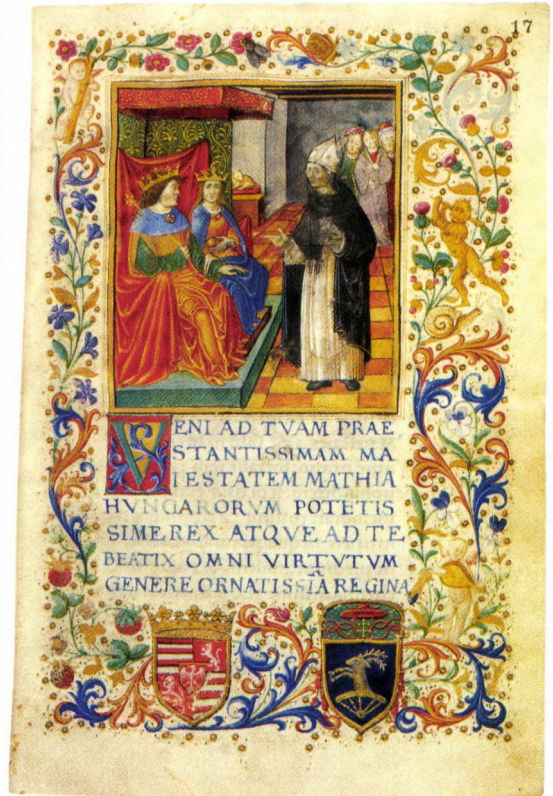 17
VENI AD TVAM PRAE
STANTISSIMAM MA
IESTATEM MATHIA
HVNGARORVM POTETIS
SIME REX ATQVE AD TE
BEATIX OMNI VIRTVTVM
GENERE ORNATISSIĀ REGINA